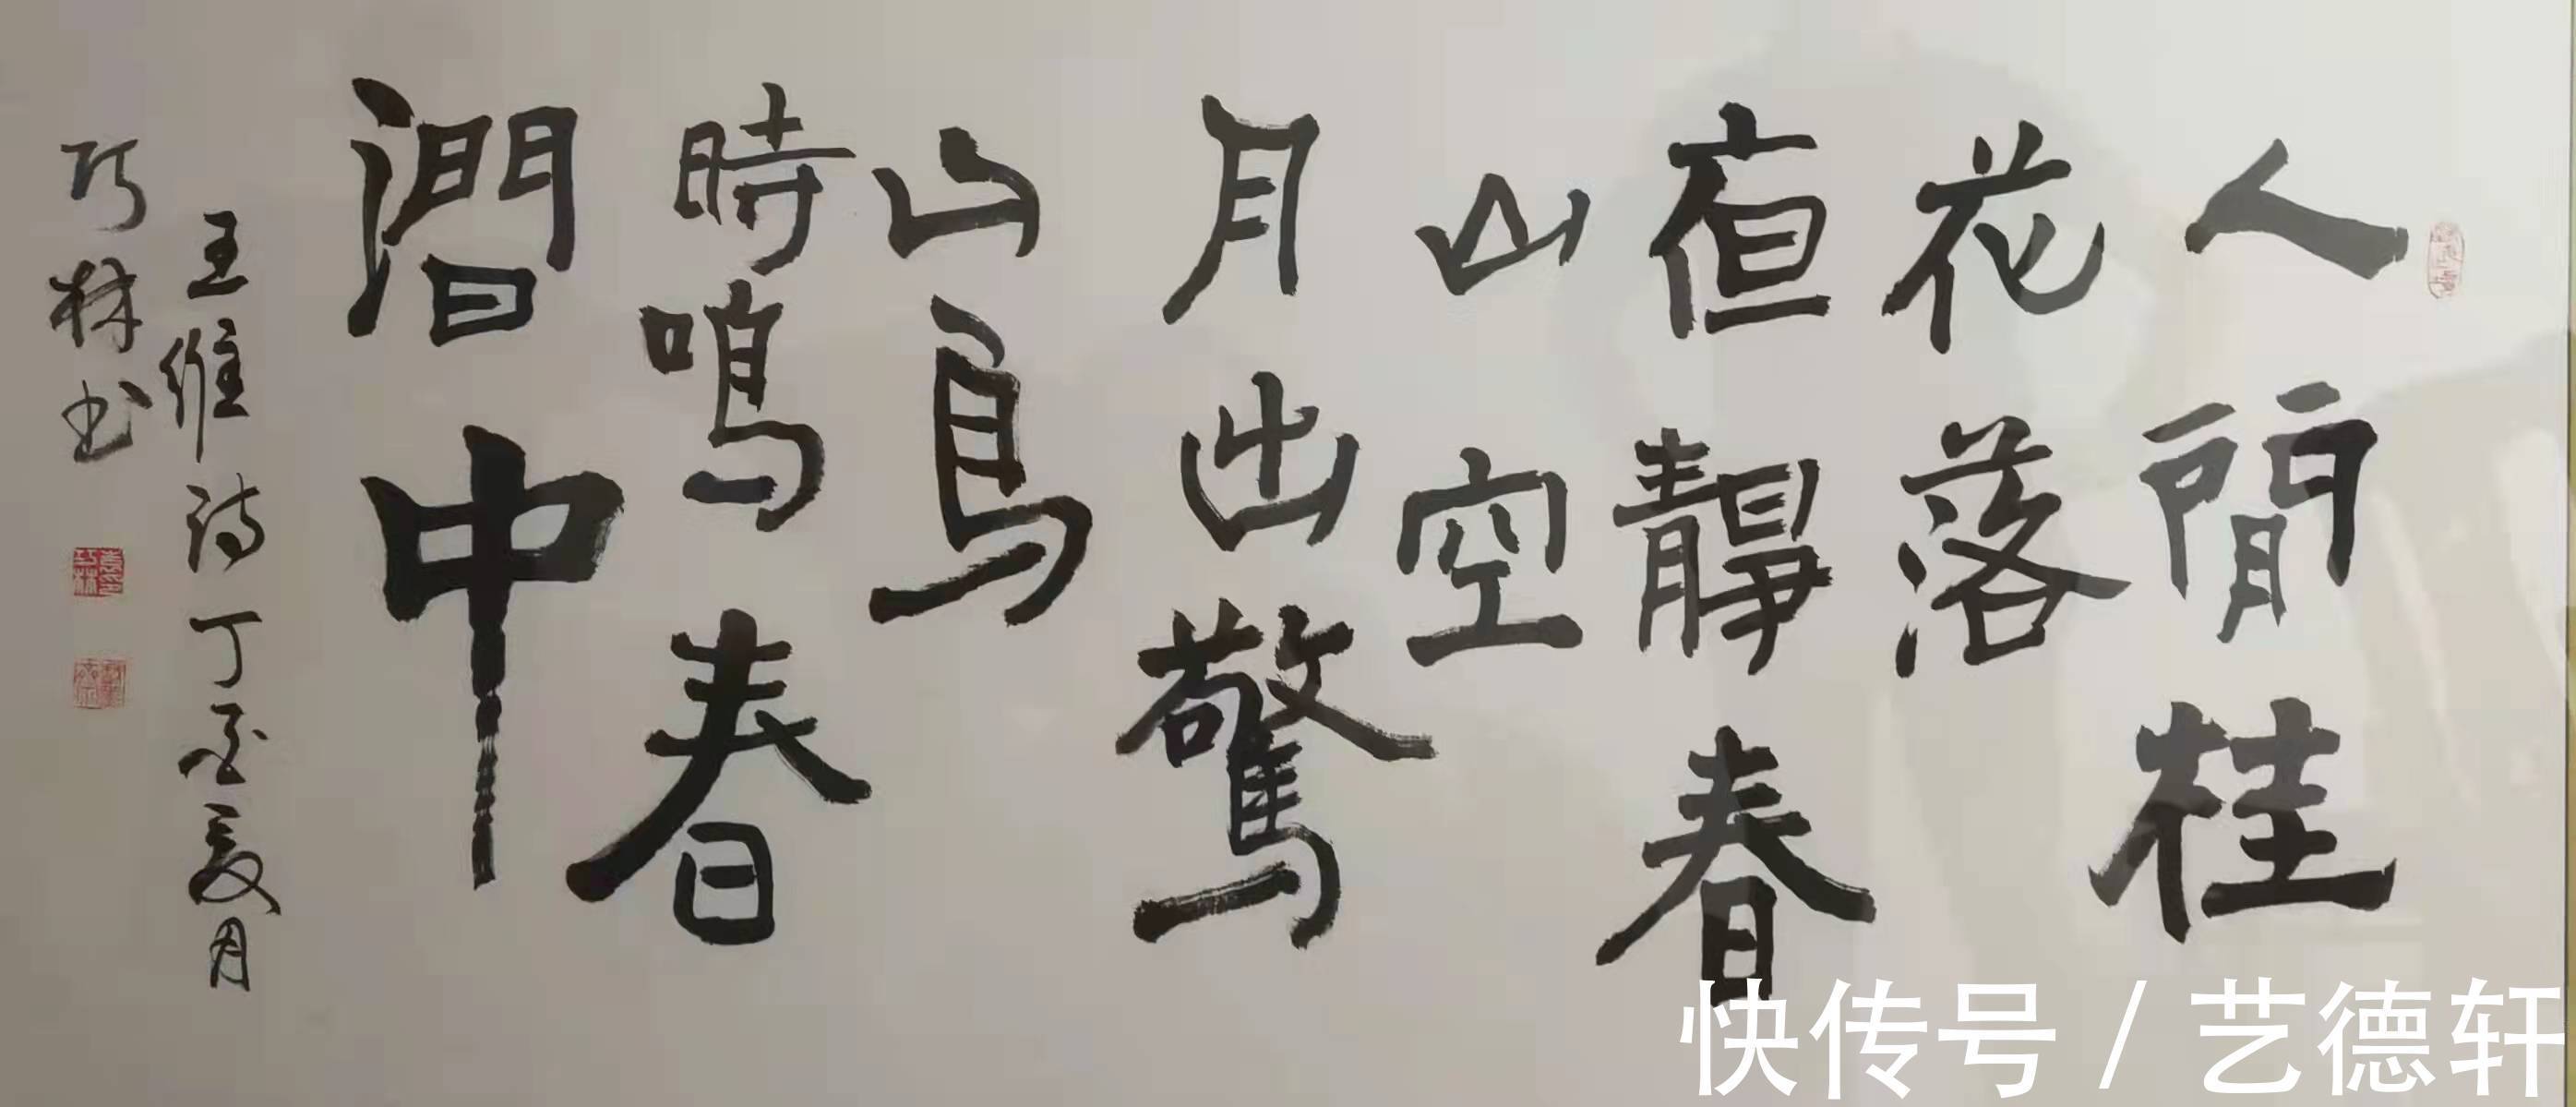 人閒桂
花落
夜靜春
山空
月出驚
山鳥
時鳴春
澗中
王維诗丁夏月
巧林书
快传号/艺德轩